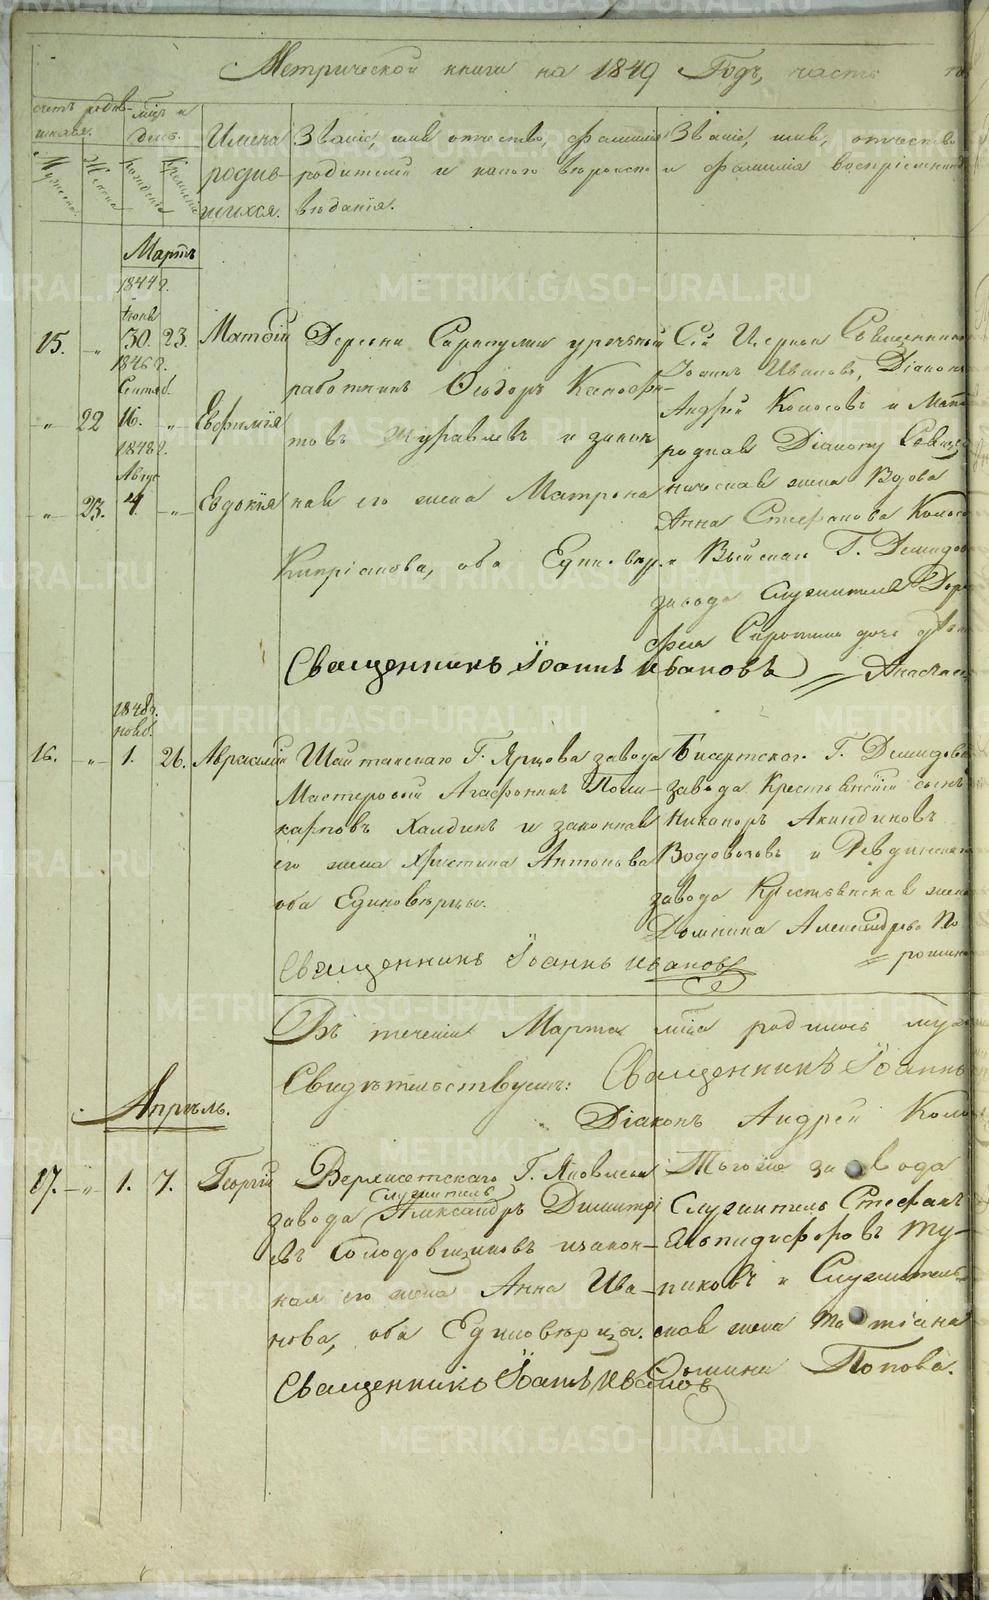 Метрической книги на 1849 Годъ, часть
счетъ родив-
шихся.
Мужеска.
Женска
мѣс. и
день.
Рожденія
Крещенія
Имена
родив-
шихся.
Званіе, имя отчество, фамилія
родителей и какого вѣроиспо-
вѣданія.
Званіе, имя, отчество
и фамилія воспріемник
Мартъ
1844 г.
Іюня
15. -„- 30. 23. Матѳій
1846 г.
Сентяб.
-„- 22 16. -„- Евфимія
1848 г.
Авгус
-„- 23. 4. -„- Евдокія
Деревни Сарапулки урочный
работникъ Ѳедоръ
товъ Журавлевъ и закон
ная его жена Матрона
Кипріанова, оба Единовѣр.
Сей Церкви Священник
Іоаннъ Ивановъ, Діаконъ
Андрей Колосовъ и
родная Діакону
жена Вдова
Анна Стефанова Колосо
и Выйскаго Г. Демидова
завода Служителя
Сиротина дочь
Священникъ Іоаннъ Ивановъ
1848 г.
нояб.
16. -„- 1. 26. Авраамій
Шайтанскаго Г. Ярцова завода
Мастеровой Агафоникъ Поли-
карповъ Халдинъ и законная
его жена Христина Антонова
оба Единовѣрцы.
Бисертскаго Г. Демидова
завода Крестьянскій сынъ
Никаноръ Акиндиновъ
Водовозовъ и Ревдинскаго
завода Крестьянская жена
Домнина Александрова По
рошина
Священникъ Іоаннъ Ивановъ
Въ теченіи Марта мѣсяца родилось муж
Свидѣтельствуемъ: Священникъ Іоаннъ
Діаконъ Андрей Коло
Апрѣль.
17. -„- 1. 7. Георгій
Верхисетскаго Г. Яковлева
служитель
завода Александръ Димитрі
евъ Солодовниковъ и закон-
ная его жена Анна Ива-
нова, оба Единовѣрцы.
Тогоже завода
Служитель Стефанъ
Елпидифоровъ Ту-
пиковъ и Служитель-
ская жена Татіана
Фомина Попова.
Священникъ Іоаннъ Ивановъ
METRIKI.GASO-URAL.RU